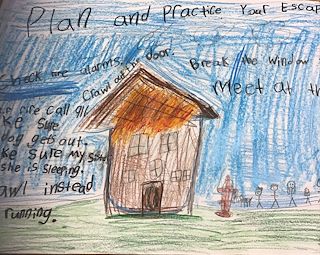 Plan and Practice Your Escap
check the alarms.
Crawl out the door.
Break the window
Meet at th
fire call 911
ke sure
gets out.
ke sure my
she is sleeping.
awl instead
running.